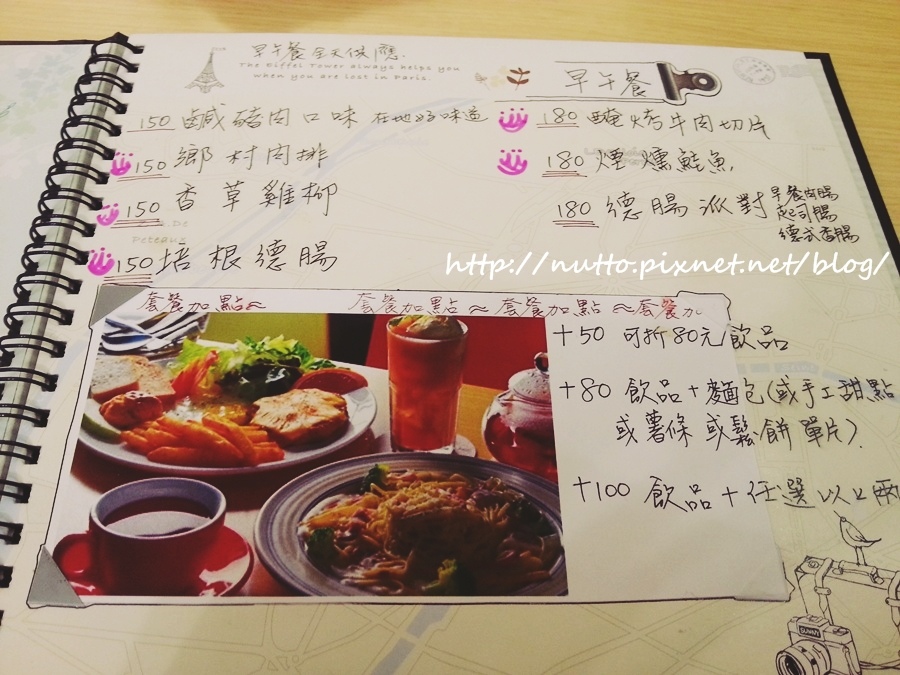 早午餐全天供應
The Eiffel Tower always helps you
when you are lost in Paris.
早午餐
150 鹹豬肉口味 在地好味道
150 鄉村肉排
150 香草雞柳
150 培根德腸
180 醃烤牛肉切片
180 煙燻鮭魚
180 德腸派對 早餐肉腸
起司腸
德式香腸
http://nutto.pixnet.net/blog/
套餐加點~ 套餐加點~套餐加點~套餐加
+50 可折80元飲品
+80 飲品+麵包(或手工甜點
或薯條 或鬆餅單片)
+100 飲品+任選以上兩